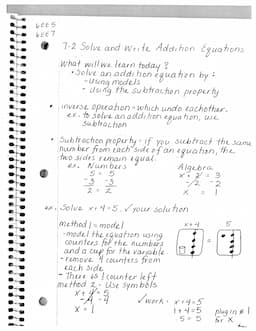 6EE5
6EE7
7-2 Solve and Write Addition Equations
What will we learn today?
• Solve an addition equation by:
- Using models
- Using the subtraction property
• inverse operation = which undo eachother.
ex. to solve an addition equation, use
subtraction
• Subtraction property - if you subtract the same
number from each side of an equation, the
two sides remain equal.
ex. Numbers Algebra
5 = 5 x + 2 = 3
-3 -3 -2 -2
2 = 2 x = 1
ex. Solve x+4=5. ✓ your solution
method 1 = model x+4 5
-model the equation using
counters for the numbers
and a cup for the variable
-remove 4 counters from
each side
- There is 1 counter left
method 2 - Use symbols
x + 4 = 5 ✓ work: x+4=5
-4 -4 1+4=5 plug in 1
x = 1 5=5 for x